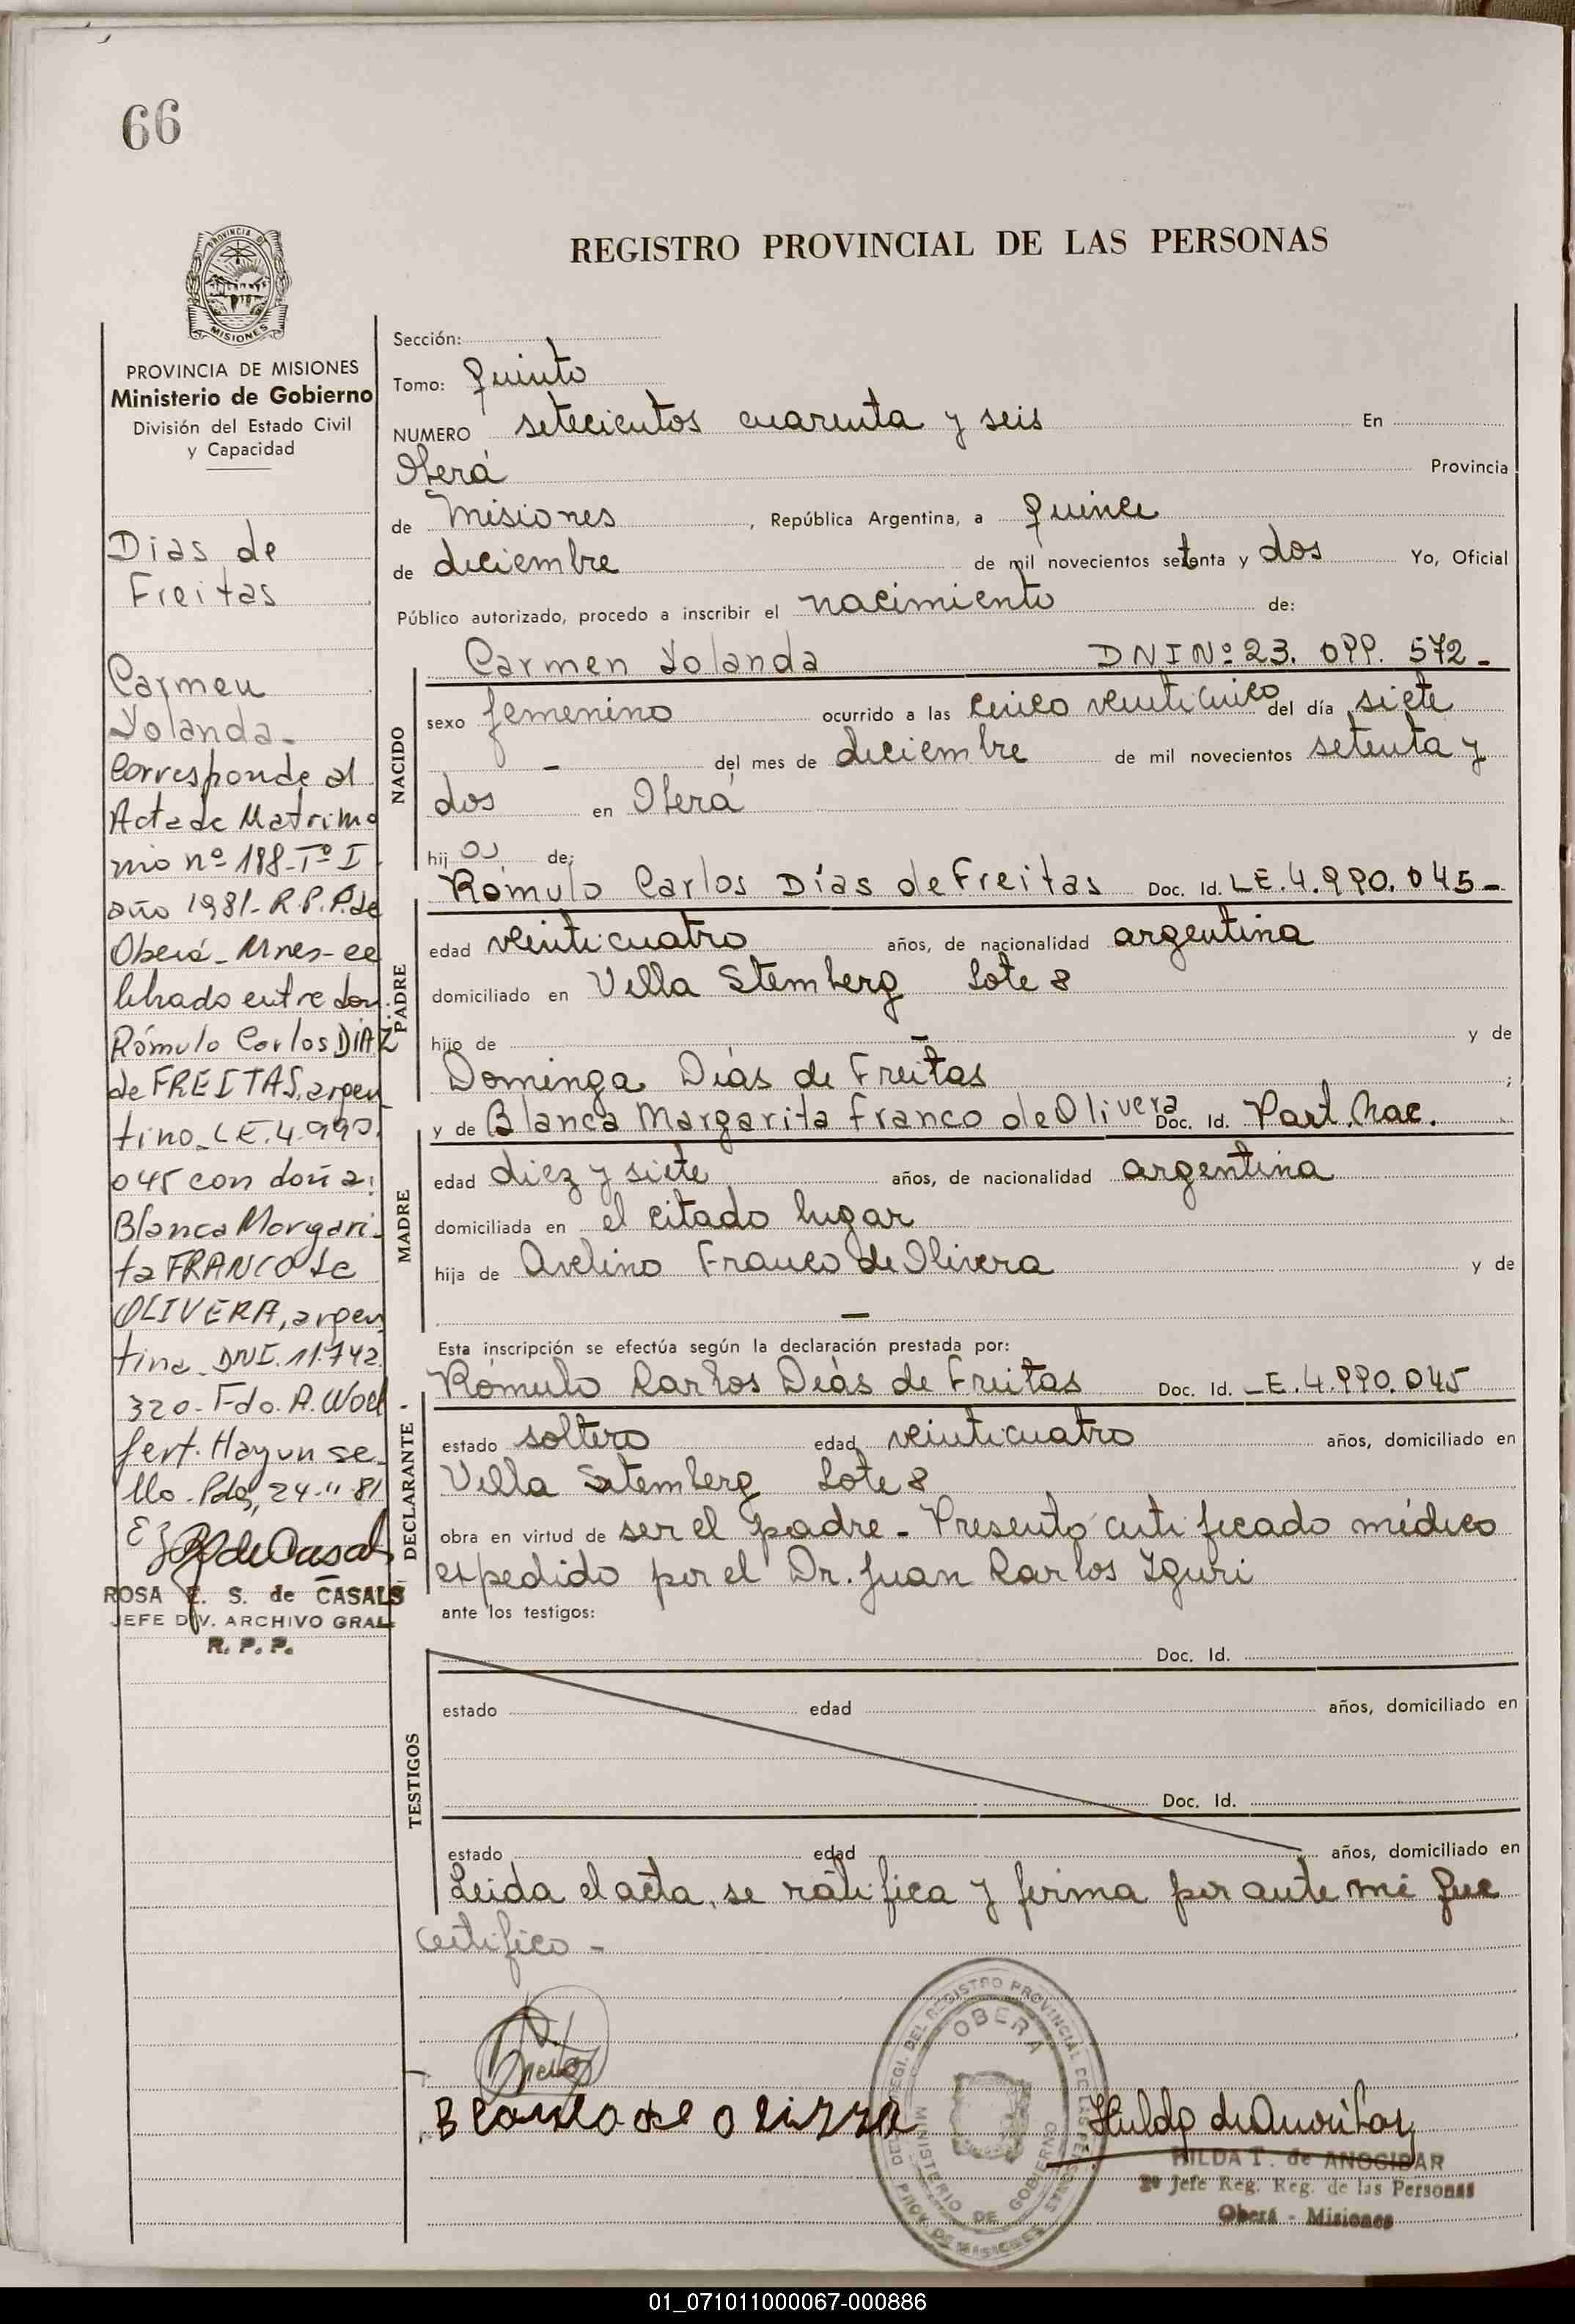 66
REGISTRO PROVINCIAL DE LAS PERSONAS
PROVINCIA DE MISIONES
Ministerio de Gobierno
División del Estado Civil
y Capacidad
Dias de
Freitas
Carmen
Yolanda-
Corresponde al
Acta de Matrimo
nio nº 188-Tº I
año 1981- R.P.P. de
Oberá- Mnes- ce
lebrado entre don:
Rómulo Carlos DIAZ
de FREITAS, argen
tino- LE. 4.990.
045 con doña:
Blanca Margari-
ta FRANCO de
OLIVERA, argen
tina- DNI. 11.742.
320- Fdo. A. Woel
fert. Hay un se-
llo- Pdas, 24-11-81
ROSA E. S. de CASALS
JEFE DIV. ARCHIVO GRAL.
R. P. P.
Sección:
Tomo: Quinto
NUMERO setecientos cuarenta y seis En
Oberá Provincia
de Misiones, República Argentina, a quince
de diciembre de mil novecientos setenta y dos Yo, Oficial
Público autorizado, procedo a inscribir el nacimiento de:
NACIDO
Carmen Yolanda DNI Nº 23. 099. 572-
sexo femenino ocurrido a las cinco veinticinco del día siete
- del mes de diciembre de mil novecientos setenta y
dos en Oberá
hija de:
PADRE
Rómulo Carlos Días de Freitas Doc. Id. LE. 4.990.045-
edad veinticuatro años, de nacionalidad argentina
domiciliado en Villa Stemberg Lote 8
hijo de - y de
Dominga Días de Freitas ;
MADRE
y de Blanca Margarita Franco de Olivera Doc. Id. Part. Nac.
edad diez y siete años, de nacionalidad argentina
domiciliada en el citado lugar
hija de Avelino Franco de Olivera y de
-
Esta inscripción se efectúa según la declaración prestada por:
DECLARANTE
Rómulo Carlos Días de Freitas Doc. Id. LE. 4.990.045
estado soltero edad veinticuatro años, domiciliado en
Villa Stemberg Lote 8
obra en virtud de ser el padre- Presentó certificado médico
expedido por el Dr. Juan Carlos Yguri
ante los testigos:
TESTIGOS
Doc. Id.
estado edad años, domiciliado en
Doc. Id.
estado edad años, domiciliado en
Leida el acta, se ratifica y firma por ante mi que
certifico-
OBERA
MINISTERIO DE GOBIERNO
HILDA T. de ANOCIBAR
2º Jefe Reg. Reg. de las Personas
Oberá - Misiones
01_071011000067-000886